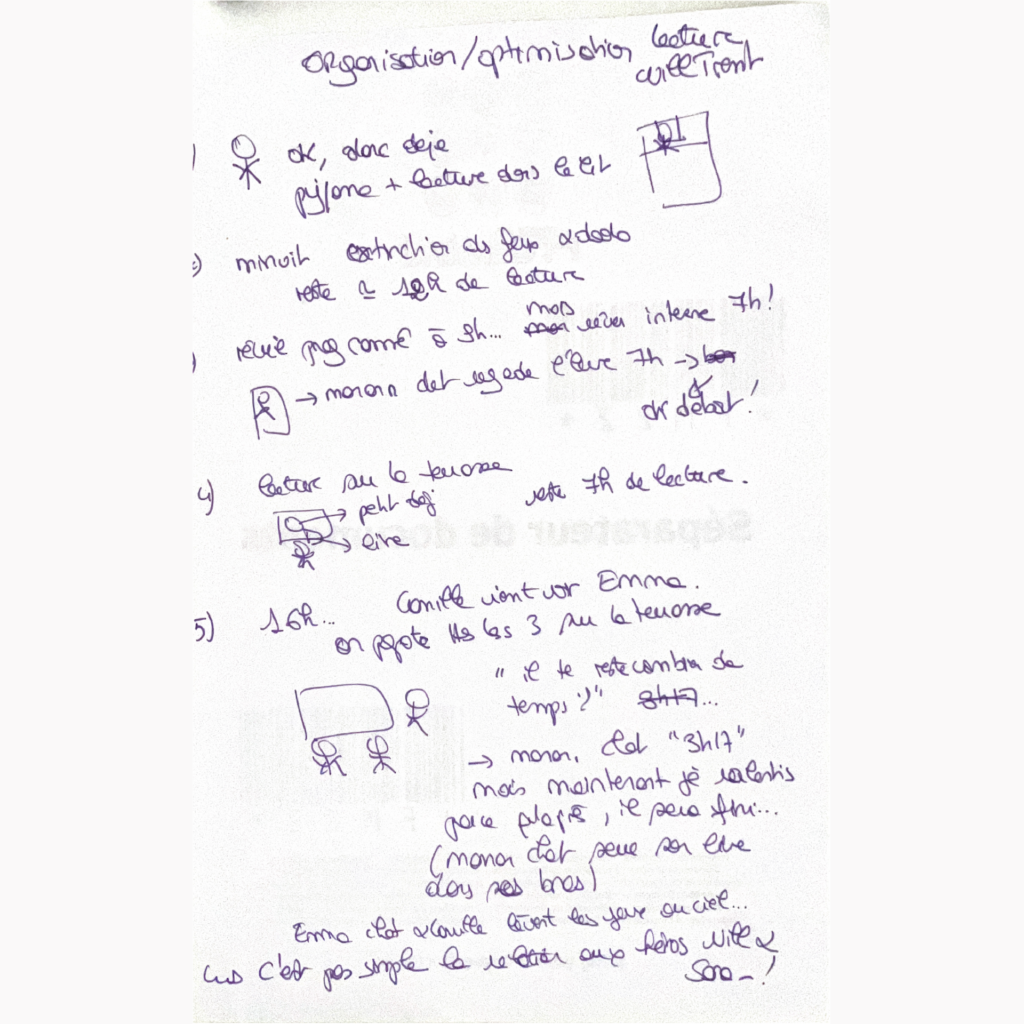 Organisation/optimisation lecture
Will Trent
1) OK, donc déjà
pyjama + lecture dans le lit
2) minuit extinction des feux & dodo
reste ≃ 12h de lecture
3) réveil programmé à 9h... mais réveil interne 7h!
→ maman chat regarde l'heure 7h →
on débat!
4) lecture sur la terrasse
→ petit dej reste 7h de lecture.
→ livre
5) 16h... Camille vient voir Emma.
on papote ttes les 3 sur la terrasse
"il te reste combien de
temps?" 3h17...
→ maman chat "3h17"
mais maintenant je ralentis
parce qu'après, il sera fini...
(maman chat serre son livre
dans ses bras)
Emma chat & Camille lèvent les yeux au ciel...
c'est pas simple la relation aux héros Will &
Sara_!